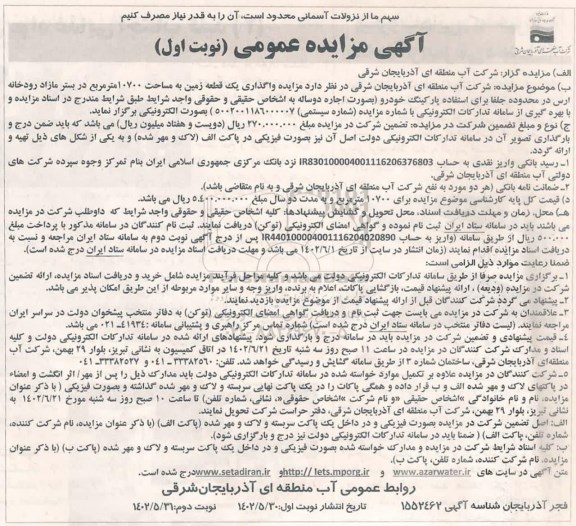 سهم ما از نزولات آسمانی محدود است، آن را به قدر نیاز مصرف کنیم
آگهی مزایده عمومی (نوبت اول)
الف) مزایده گزار: شرکت آب منطقه ای آذربایجان شرقی
ب) موضوع مزایده: شرکت آب منطقه ای آذربایجان شرقی در نظر دارد مزایده واگذاری یک قطعه زمین به مساحت ۱۰۷۰۰مترمربع در بستر مازاد رودخانه
ارس در محدوده جلفا برای استفاده پارکینگ خودرو (بصورت اجاره دوساله به اشخاص حقیقی و حقوقی واجد شرایط طبق شرایط مندرج در اسناد مزایده و
با بهره گیری از سامانه تدارکات الکترونیکی با شماره مزایده (شماره سیستمی) (۵۰۰۲۰۰۱۱۸۶۰۰۰۰۰۷) بصورت الکترونیکی برگزار نماید.
ج) نوع و مبلغ تضمین شرکت در مزایده: تضمین شرکت در مزایده مبلغ ۲۷۰.۰۰۰.۰۰۰ ریال (دویست و هفتاد میلیون ریال) می باشد که باید ضمن درج و
بارگذاری تصویر آن در سامانه تدارکات الکترونیکی دولت اصل آن نیز بصورت فیزیکی در پاکت الف (لاک و مهر شده) و به یکی از شکل های ذیل تهیه و
ارائه گردد.
۱ـ رسید بانکی واریز نقدی به حساب IR830100004001116206376803 نزد بانک مرکزی جمهوری اسلامی ایران بنام تمرکز وجوه سپرده شرکت های
دولتی آب منطقه ای آذربایجان شرقی.
۲ـ ضمانت نامه بانکی (هر دو مورد به نفع شرکت آب منطقه ای آذربایجان شرقی و به نام متقاضی باشد).
د) قیمت کل پایه کارشناسی موضوع مزایده برای ۱۰۷۰۰ مترمربع و به مدت دو سال مبلغ ۵.۴۰۰.۰۰۰.۰۰۰ ریال می باشد.
هـ) محل، زمان و مهلت دریافت اسناد، محل تحویل و گشایش پیشنهادها: کلیه اشخاص حقیقی و حقوقی واجد شرایط که داوطلب شرکت در مزایده
می باشند باید در سامانه ستاد ایران ثبت نام نموده و گواهی امضای الکترونیکی (توکن) دریافت نمایند. ثبت نام کنندگان در سامانه مذکور با پرداخت مبلغ
۵۰۰.۰۰۰ ریال از طریق سامانه (واریز به حساب IR440100004001116204020890 پس از درج آگهی نوبت دوم به سامانه ستاد ایران مراجعه و نسبت به
دریافت اسناد مزایده اقدام نمایند (زمان انتشار در سایت از تاریخ ۱۴۰۲/۶/۱ می باشد و مهلت دریافت اسناد مزایده در سامانه ستاد ایران درج شده است).
ضمنا رعایت موارد ذیل الزامی است:
۱ـ برگزاری مزایده صرفا از طریق سامانه تدارکات الکترونیکی دولت می باشد و کلیه مراحل فرآیند مزایده شامل خرید و دریافت اسناد مزایده، ارائه تضمین
شرکت در مزایده (ودیعه) ، ارائه پیشنهاد قیمت، بازگشایی پاکات، اعلام به برنده، واریز وجه و سایر موارد مربوطه از این طریق امکان پذیر می باشد.
۲ـ پیشنهاد می گردد شرکت کنندگان قبل از ارائه پیشنهاد قیمت از موضوع مزایده بازدید نمایند.
۳ـ علاقمندان به شرکت در مزایده می بایست جهت ثبت نام و دریافت گواهی امضای الکترونیکی (توکن) به دفاتر منتخب پیشخوان دولت در سراسر ایران
مراجعه نمایند. (لیست دفاتر منتخب در سامانه ستاد ایران درج شده است) شماره تماس مرکز راهبری و پشتیبانی سامانه :۴۱۹۳۴ـ۰۲۱ می باشد.
۴ـ قیمت پیشنهادی و تضمین شرکت در مزایده باید در سامانه درج و بارگذاری شود. پیشنهادهای ارائه شده در سامانه تدارکات الکترونیکی دولت و کلیه
اسناد و مدارک شرکت کنندگان در مزایده در ساعت ۱۱ صبح روز سه شنبه تاریخ ۱۴۰۲/۶/۲۱ در اتاق کمیسیون به نشانی تبریز، بلوار ۲۹ بهمن، شرکت آب
منطقه‌ای آذربایجان شرقی، ساختمان شماره ۳ از طریق سامانه گشایش و رسیدگی خواهد شد. تلفن: ۳۳۳۸۲۵۶۰-۰۴۱ و ۳۳۳۸۲۵۶۷-۰۴۱
۵ـ شرکت کنندگان در مزایده علاوه بر تکمیل موارد خواسته شده در سامانه تدارکات الکترونیکی دولت باید مدارک ذیل را پس از مهر/ اثر انگشت و امضاء
در پاکتهای لاک و مهر شده الف و ب قرار داده و همگی پاکات را در یک پاکت نهایی سربسته و لاک و مهر شده گذاشته و بصورت فیزیکی ( با ذکر عنوان
مزایده، نام و نام خانوادگی «اشخاص حقیقی «و نام شرکت »اشخاص حقوقی»، نشانی، شماره تلفن) تا ساعت ۱۰ صبح روز سه شنبه مورخ ۱۴۰۲/۶/۲۱ به
نشانی تبریز، بلوار ۲۹ بهمن، شرکت آب منطقه ای آذربایجان شرقی، دفتر حراست شرکت تحویل نمایند.
الف: اصل تضمین شرکت در مزایده بصورت فیزیکی و در داخل یک پاکت سربسته و لاک و مهر شده (پاکت الف) (با ذکر عنوان مزایده، نام شرکت کننده،
شماره تلفن، پاکت الف) ( ضمنا باید در سامانه تدارکات الکترونیکی دولت نیز درج و بارگزاری شود).
ب: کلیه اسناد شرایط شرکت در مزایده و مدارک خواسته شده بصورت فیزیکی و در داخل یک پاکت سربسته و لاک و مهر شده (پاکت ب) (با ذکر عنوان
مزایده، نام شرکت کننده، شماره تلفن، پاکت ب).
متن آگهی در سایت های www.azarwater.ir و http:// iets.mporg.ir و www.setadiran.ir درج شده است.
روابط عمومی آب منطقه ای آذربایجان شرقی
فجر آذربایجان شناسه آگهی ۱۵۵۲۴۶۲ تاریخ انتشار نوبت اول: ۱۴۰۲/۵/۳۰ نوبت دوم: ۱۴۰۲/۵/۳۱